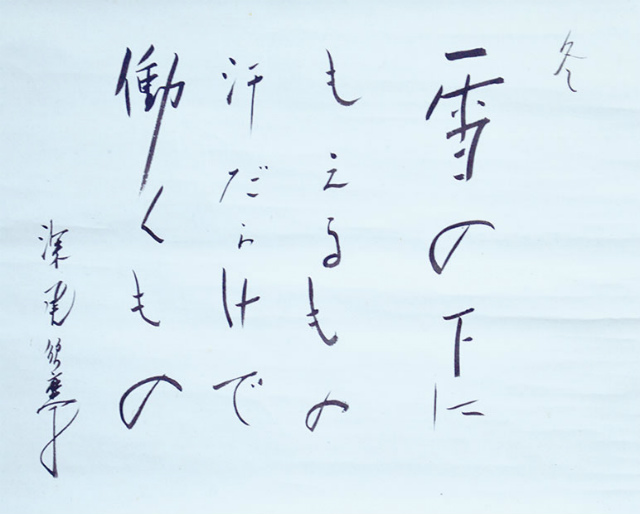 冬
雪の下に
もえるもの
汗だらけで
働くもの
深尾須磨子